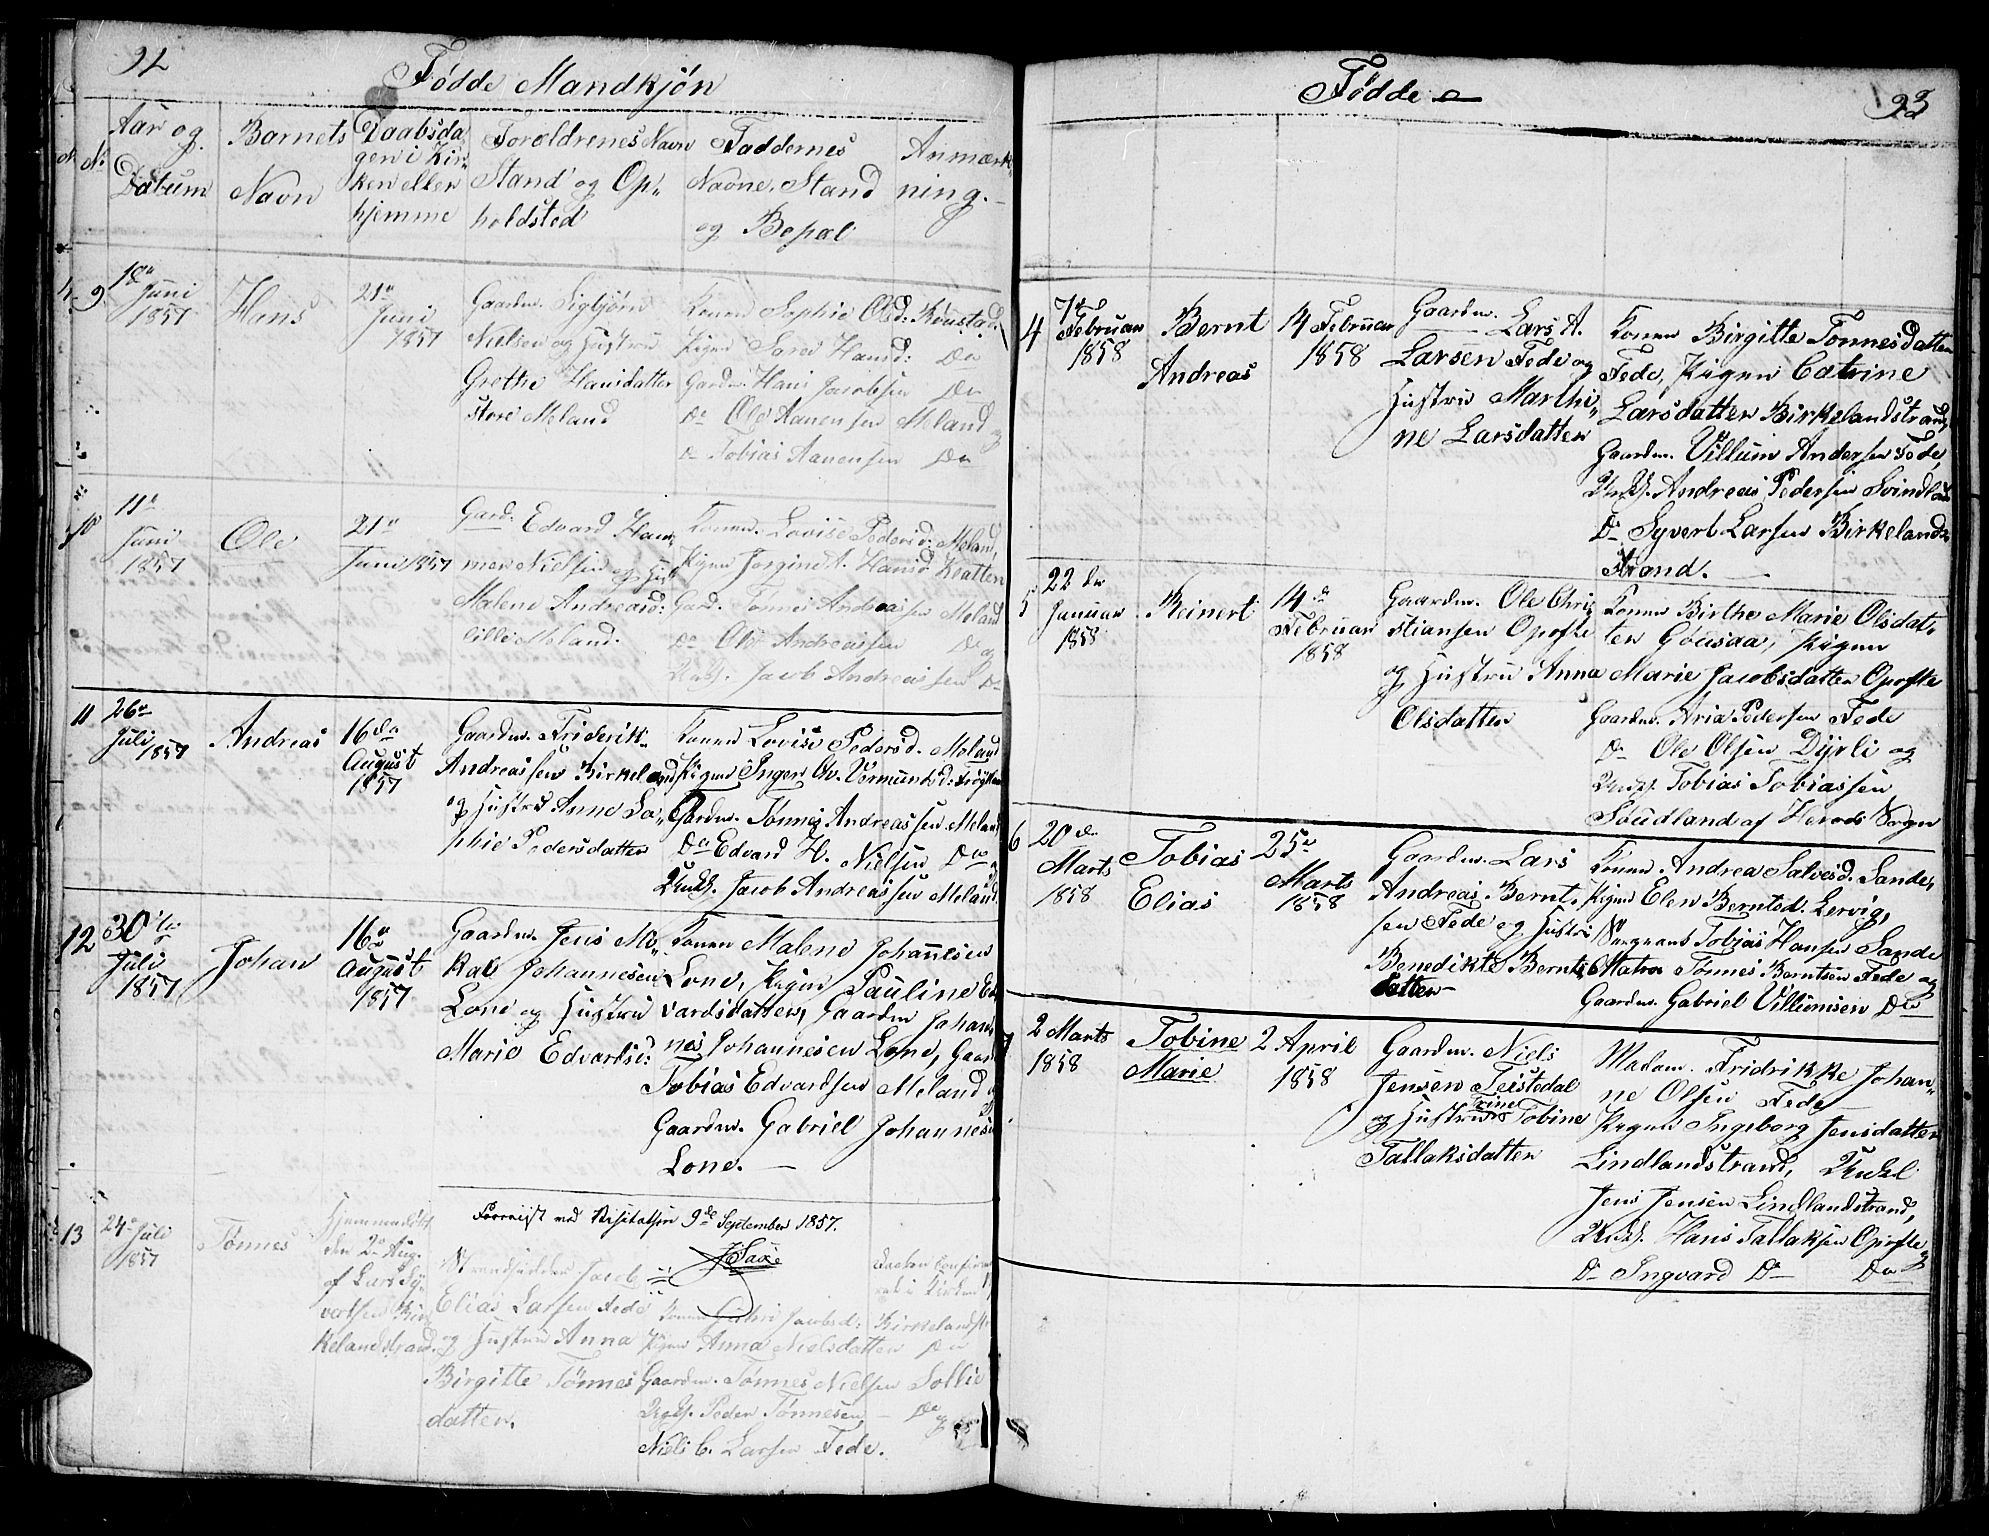 92
Fødde Mandkjøn
No
Aar og
Datum
Barnets
Navn
Daabsda-
gen i Kir-
ken eller
hjemme
Foreldrenes Navn
Stand og Op-
holdsted
Faddernes
Navne, Stand
og Bopæl
Anmærk-
ning.
9
18de
Juni
1857
Hans
21de
Juni
1857
Gaardm. Sigbjørn
Nielsen og Hustru
Grethe Hansdatter
store Meland
Konen Sophie Olsd: Rønstad
Pigen Hansd: Do
Gardm. Hans Jacobsen Do
Do Ole Aanensen Meland og
Do Tobias Aanensen Do
10
11te
Juni
1857
Ole
21de
Juni 1857
Gard. Edvard Ham-
mer Nielsen og Hust.
Malene Andreasd:
lille Meland.
Konen Lovise Pedersd: Meland,
Pigen Jorgine A. Hansd.
Gard. Tønnes Andreassen Meland
Do Andreassen Do og
Ungk. Jacob Andreassen Do
11
26de
Juli
1857
Andreas
16de
August
1857
Gaardm. Friderik
Andreassen Birkeland
og Hustru Anne So-
phie Pedersdatter
Konen Lovise Pedersd. Meland
Pigen Inger
Gardm. Tønnes Andreassen Meland
Do Edvard H. Nielsen Do
Ungk. Jacob Andreassen Meland.
12
30te
Juli
1857
Johan
16de
August
1857
Gaardm. Jens Mi-
kal Johannesen
Lone og Hustru
Marie Edvardsd:
Konen Malene Johannesen
Lone, Pigen Pauline Ed-
vardsdatter, Gaardm Johan-
nes Johannesen Lone, Gaard
Tobias Edvardsen Meland
Gaardm. Gabriel Johannesen
Lone.
Forevist ved Visitatsen 9de September 1857.
13
24de Juli
1857
Tønnes
Hjemmedøbt
den 2de Aug.
af Lars Sy-
vertsen Bir-
kelandstrand.
Strandsidder Jacob
Elias Larsen Fede
og Hustru Anna
Birgitte Tønnes
datter.
Konen Guhri Jacobsd: Birkelandst
Pigen Anna Nielsdatter Do
Gaardm. Tønnes Nielsen Sollie
Ungk. Peder Tønnesen Do og
Niels C. Larsen Fede.
Fødde
93
4
7de
Februar
1858
Bernt
Andreas
14 Februar
1858
Gaardm. Lars A.
Larsen Fede og
Hustru Marthi-
ne Larsdatter
Konen Birgitte Tønnesdatter
Fede, Pigen Catrine
Larsdatter Birkelandstrand,
Gaardm. Villum Andersen Fede,
Ungk. Andreas Pedersen Svindland
Do Syvert Larsen Birkeland-
strand.
5
22de
Januar
1858
Reinert
14de
Februar
1858
Gaardm. Ole Chri-
stiansen Opofte
og Hustru Anna
Olsdatter
Konen Birthe Marie Olsdat-
ter Gousaa, Pigen
Marie Jacobsdatter Opofte
Gaardm. Aria Pedersen Fede
Do Ole Olsen Dyrli og
Ungk. Tobias Tobiassen
Soudland af Herads Sogn
6
20de
Marts
1858
Tobias
Elias
25de
Marts
1858
Gaardm. Lars
Andreas Bernt-
sen Fede og Hustru
Benedikte Bernts-
datter
Konen Andrea Salvesd. Sande,
Pigen Elen Berntsd. Lervig,
Sergeant Tobias Hansen Sande
Matros Tønnes Berntsen Fede og
Gaardm. Gabriel Villumsen Do
7
2 Marts
1858
Tobine
Marie
2 April
1858
Gaardm. Niels
Jensen Teistedal
og Hustru Trine Tobine
Tallaksdatter
Madam. Fridrikke Johan-
ne Olsen Fede
Pigen Ingeborg Jensdatter
Lindlandstrand, Ungk.
Jens Jensen Lindlandstrand,
Ungk. Hans Tallaksen Opofte og
Do Ingvard Do Do